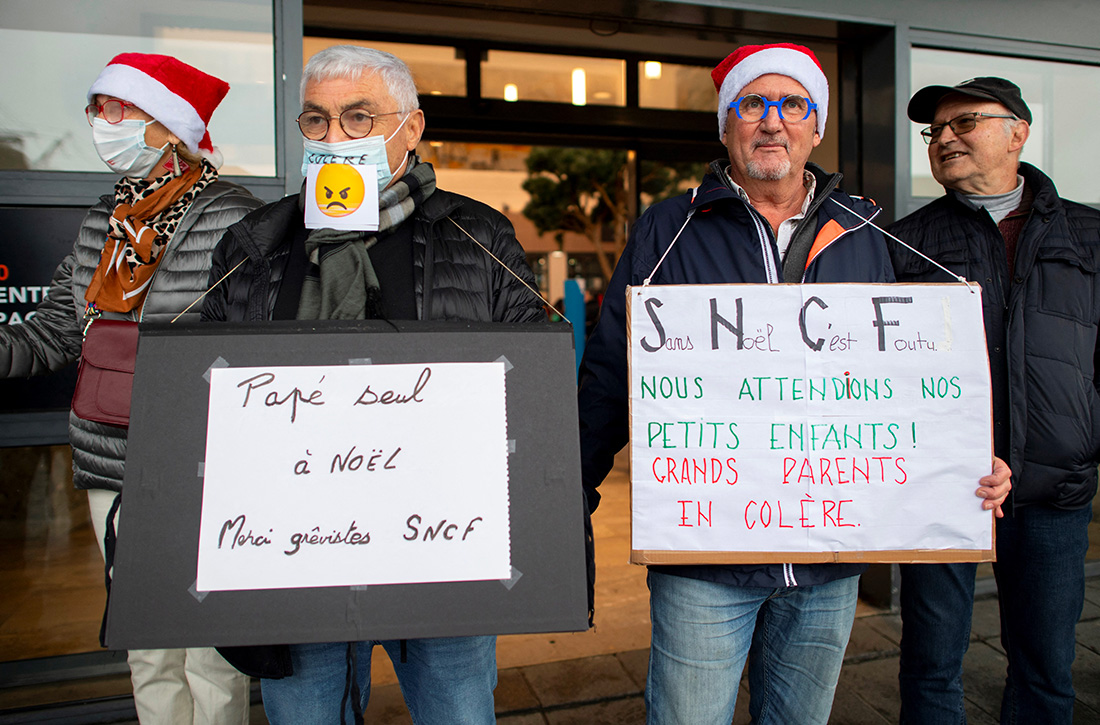 COLÈRE
Papé seul
à NOËL
Merci grêvistes SNCF
Sans Noël C'est Foutu!
NOUS ATTENDiONS NOS
PETITS ENFANTS!
GRANDS PARENTS
EN COLÈRE.
0
ENTE
PAC